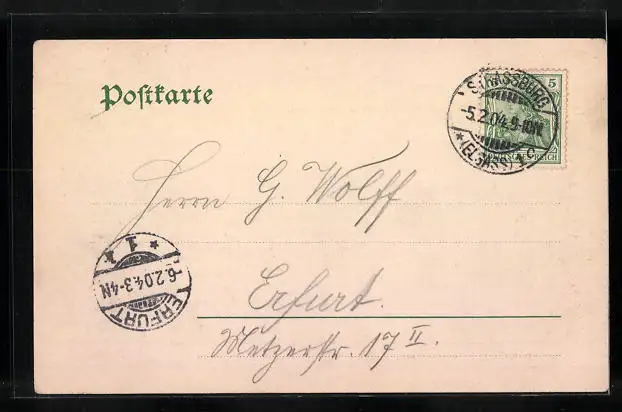 Postkarte
STRASSBURG
5
-5.2.04.9-10N.
*(ELSASS) 1 C
REICH
Herrn G. Wolff
* 1 *
-6.2.04.3-4N
ERFURT
Erfurt.
Metzerstr. 17 II.